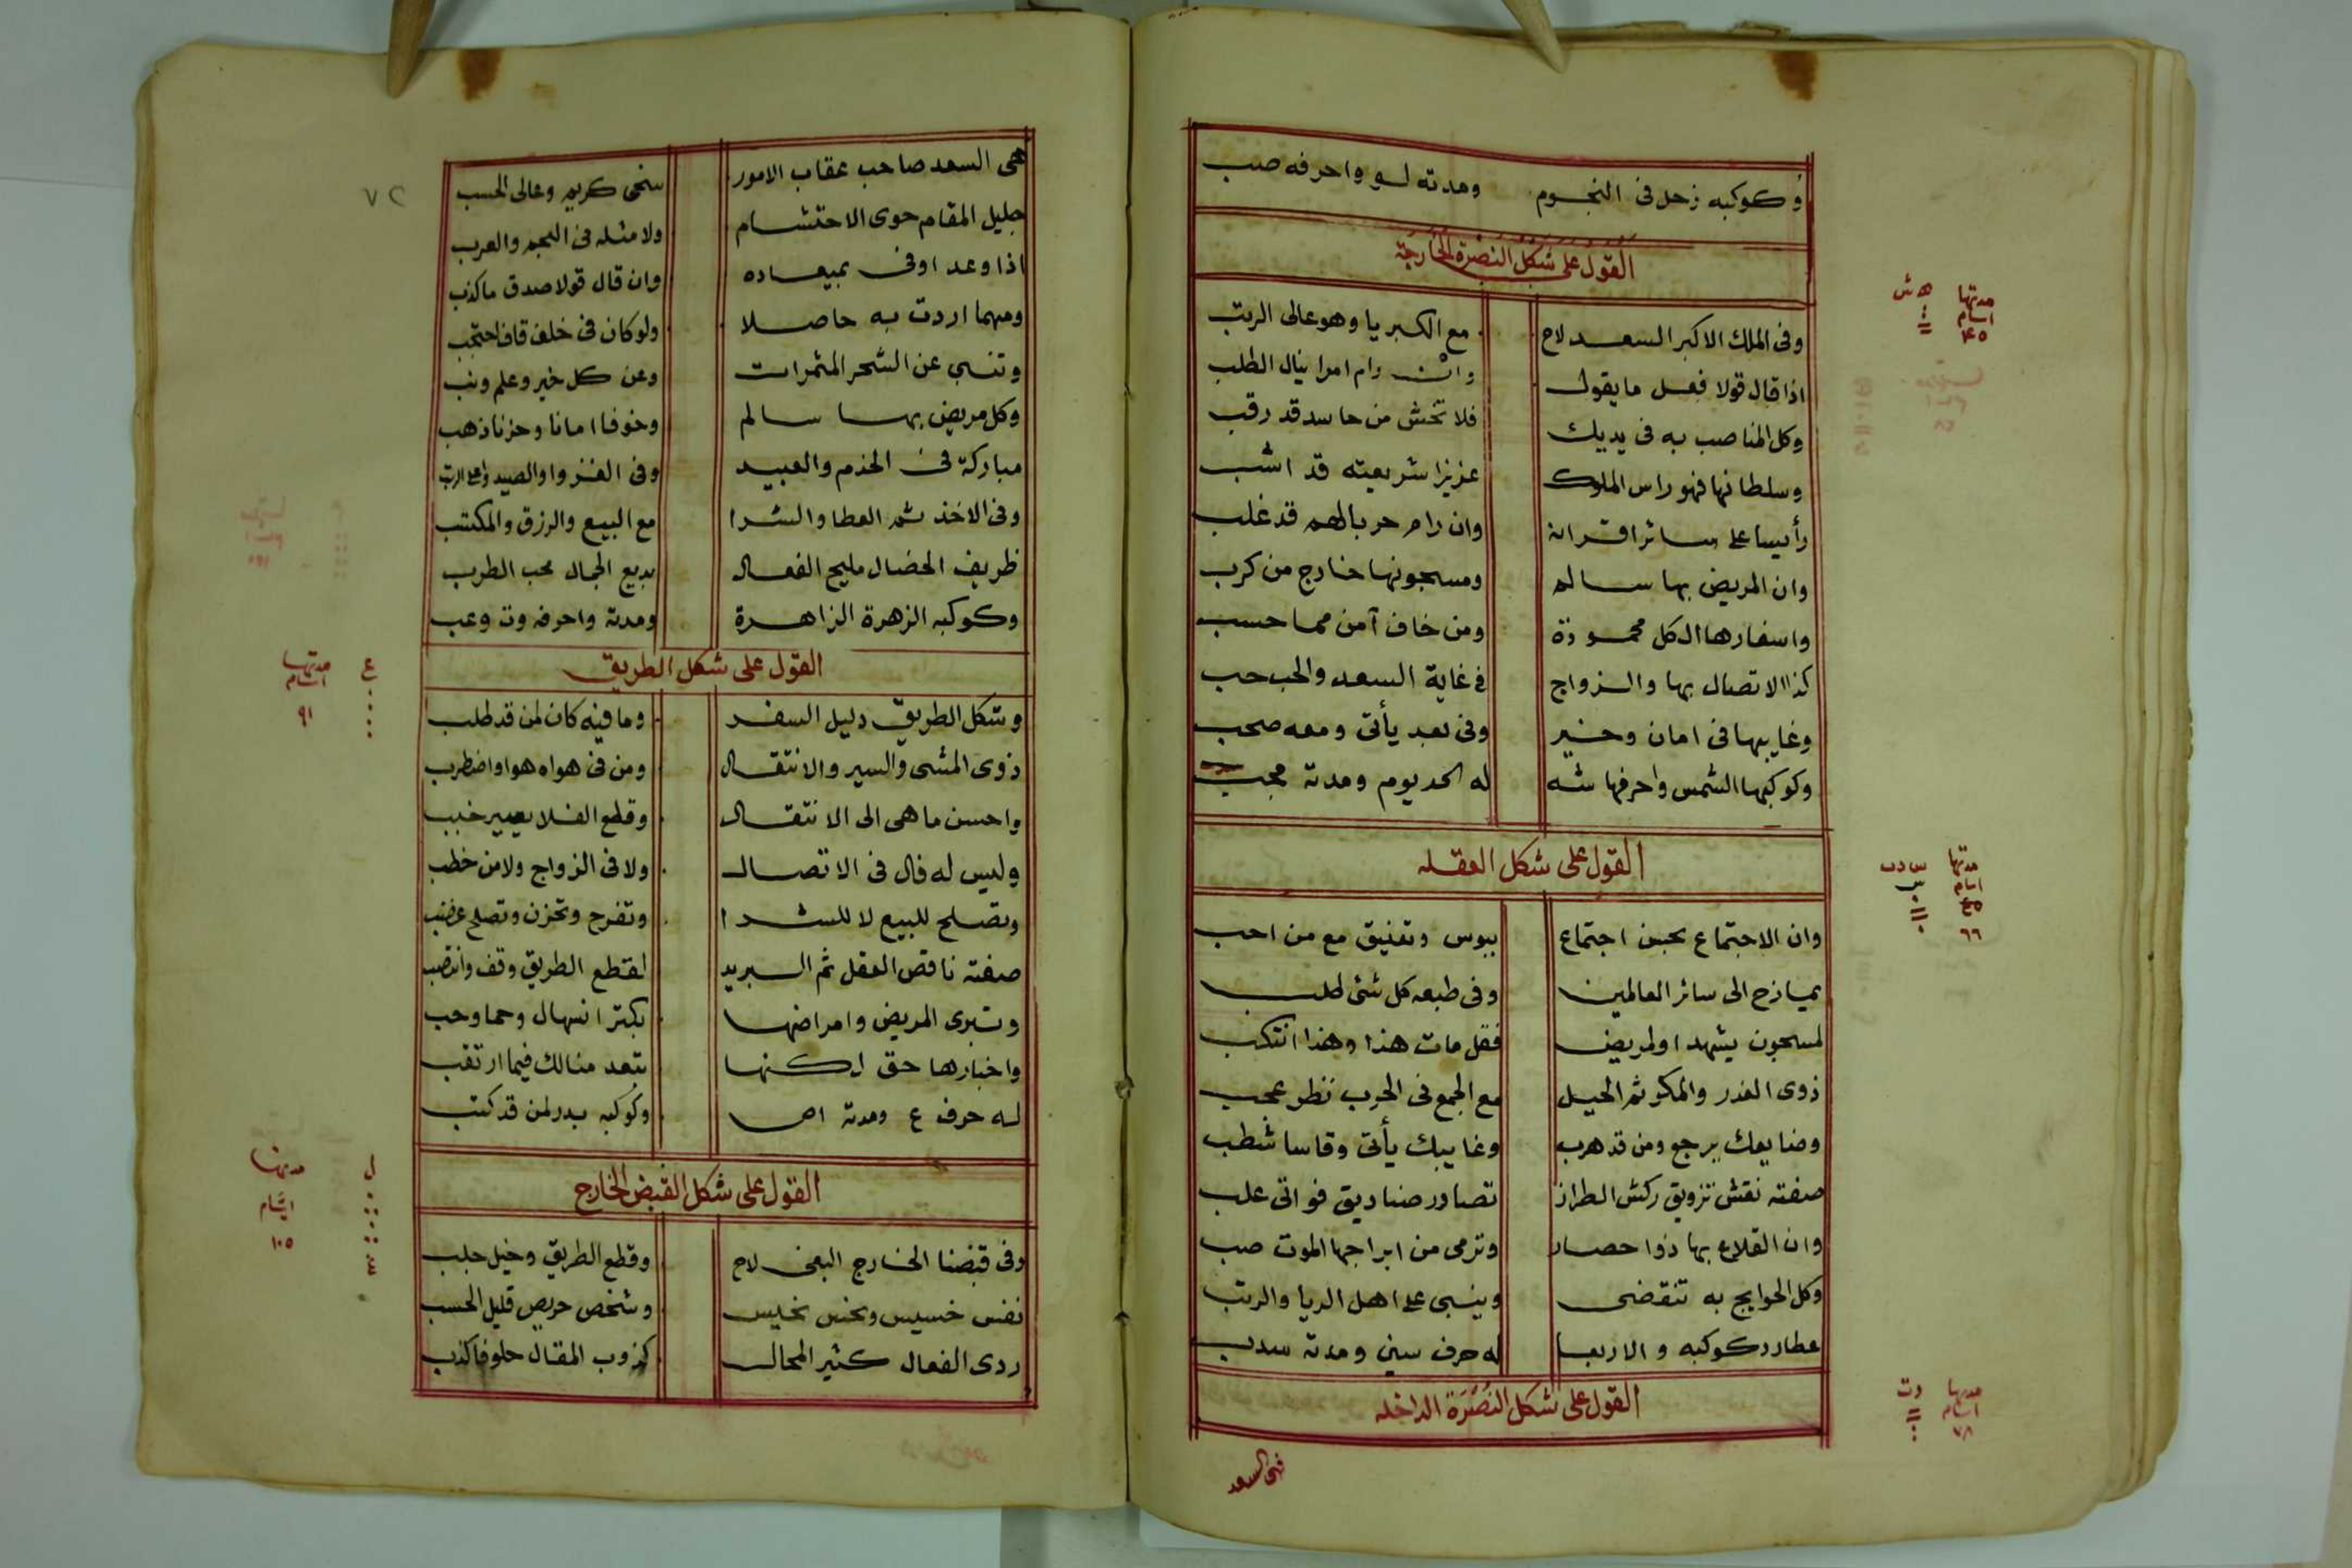 وكوكبه زحل فى النجوم ومدته لو واحرفه صب
القول على شكل النصرة الخارجة
وفى الملك الاكبر السعد لاح مع الكبريا وهو عالى الرتب
اذا قال قولا فعل ما يقول وان رام امرا ينال الطلب
وكل المناصب به فى يديك فلا تخش من حاسد قد رقب
وسلطانها فهو راس الملوك عزيزا شريعته قد اشب
رأيسا على سائر اقرانه وان رام حربا لهم قد غلب
وان المريض بها سالم ومسجونها خارج من كرب
واسفارها الكل محمودة ومن خاف آمن مما حسب
كذا الاتصال بها والزواج فى غاية السعد والحب حب
وغايبها فى امان وخير وفى بعد يأتى ومعه صحب
وكوكبها الشمس واحرفها شه له الحد يوم ومدته مجب
القول على شكل العقله
وان الاجتماع بحسن اجتماع ببوس وتعنيق مع من احب
يمازح الى سائر العالمين وفى طبعه كل شئ لطلب
لمسجون يشهد اولمريض فقل مات هذا وهذا انتكب
ذوى الغدر والمكر ثم الحيل مع الجمع فى الحرب تنظر عجب
وضايعك يرجع ومن قد هرب وغايبك يأتى وقاسا شطب
صفته نقش تزويق ركش الطراز تصاور صناديق فواتى علب
وان القلاع بها ذوا حصار وترمى من ابراجها الموت صب
وكل الحوايج به تنقضى وينبى على اهل الريا والرتب
عطارد كوكبه والاربعا له حرف سين ومدته سدب
القول على شكل النصرة الداخله
فهى السعد
مدتها
ايام
٤٥
ه ش
مدتها
ايام
٦٦
مدتها
ايام
٧٨
وت
٧٢
هى السعد صاحب عقاب الامور سخى كريم وعالى الحسب
جليل المقام حوى الاحتشام ولا مثله فى العجم والعرب
اذا وعد اوفى بميعاده وان قال قولا صدق ما كذب
ومهما اردت به حاصلا ولو كان فى خلف قاف احتجب
وتنبى عن الشجر المثمرات وعن كل خير وعلم ونب
وكل مريض بها سالم وخوفا امانا وحزنا ذهب
مباركة فى الخدم والعبيد وفى الغزوا والصيد واعلى الرتب
وفى الاخذ ثم العطا والشرا مع البيع والرزق والمكتسب
ظريف الخصال مليح الفعال بديع الجمال محب الطرب
وكوكبه الزهرة الزاهرة ومدته واحرفه وت وعب
القول على شكل الطريق
وشكل الطريق دليل السفر وما فيه كان لمن قد طلب
ذوى المشى والسير والانتقال ومن فى هواه هوا واضطرب
واحسن ما هى الى الانتقال وقطع الفلا بعير خبب
وليس له فال فى الاتصال ولا فى الزواج ولا من خطب
وتصلح للبيع لا للشرا وتفرح وتحزن وتصلح غضب
صفته ناقص العقل ثم البريد لقطع الطريق وقف وانتصب
وتبرى المريض وامراضها بكتر انسهال وحما وحب
واخبارها حق لكنها تتعد منالك فيما ارتقب
له حرف ع ومدته اص وكوكبه بدر لمن قد كتب
القول على شكل القبض الخارج
وفى قبضنا الخارج البغى لاح وقطع الطريق وخيل جلب
نفس خسيس ونحس نحيس وشخص حريص قليل الحسب
ردى الفعال كثير المحال كذوب المقال حلوفا كذب
مدتها
ايام
٩١
ع
مدتها
ايام
١٠٥
ل